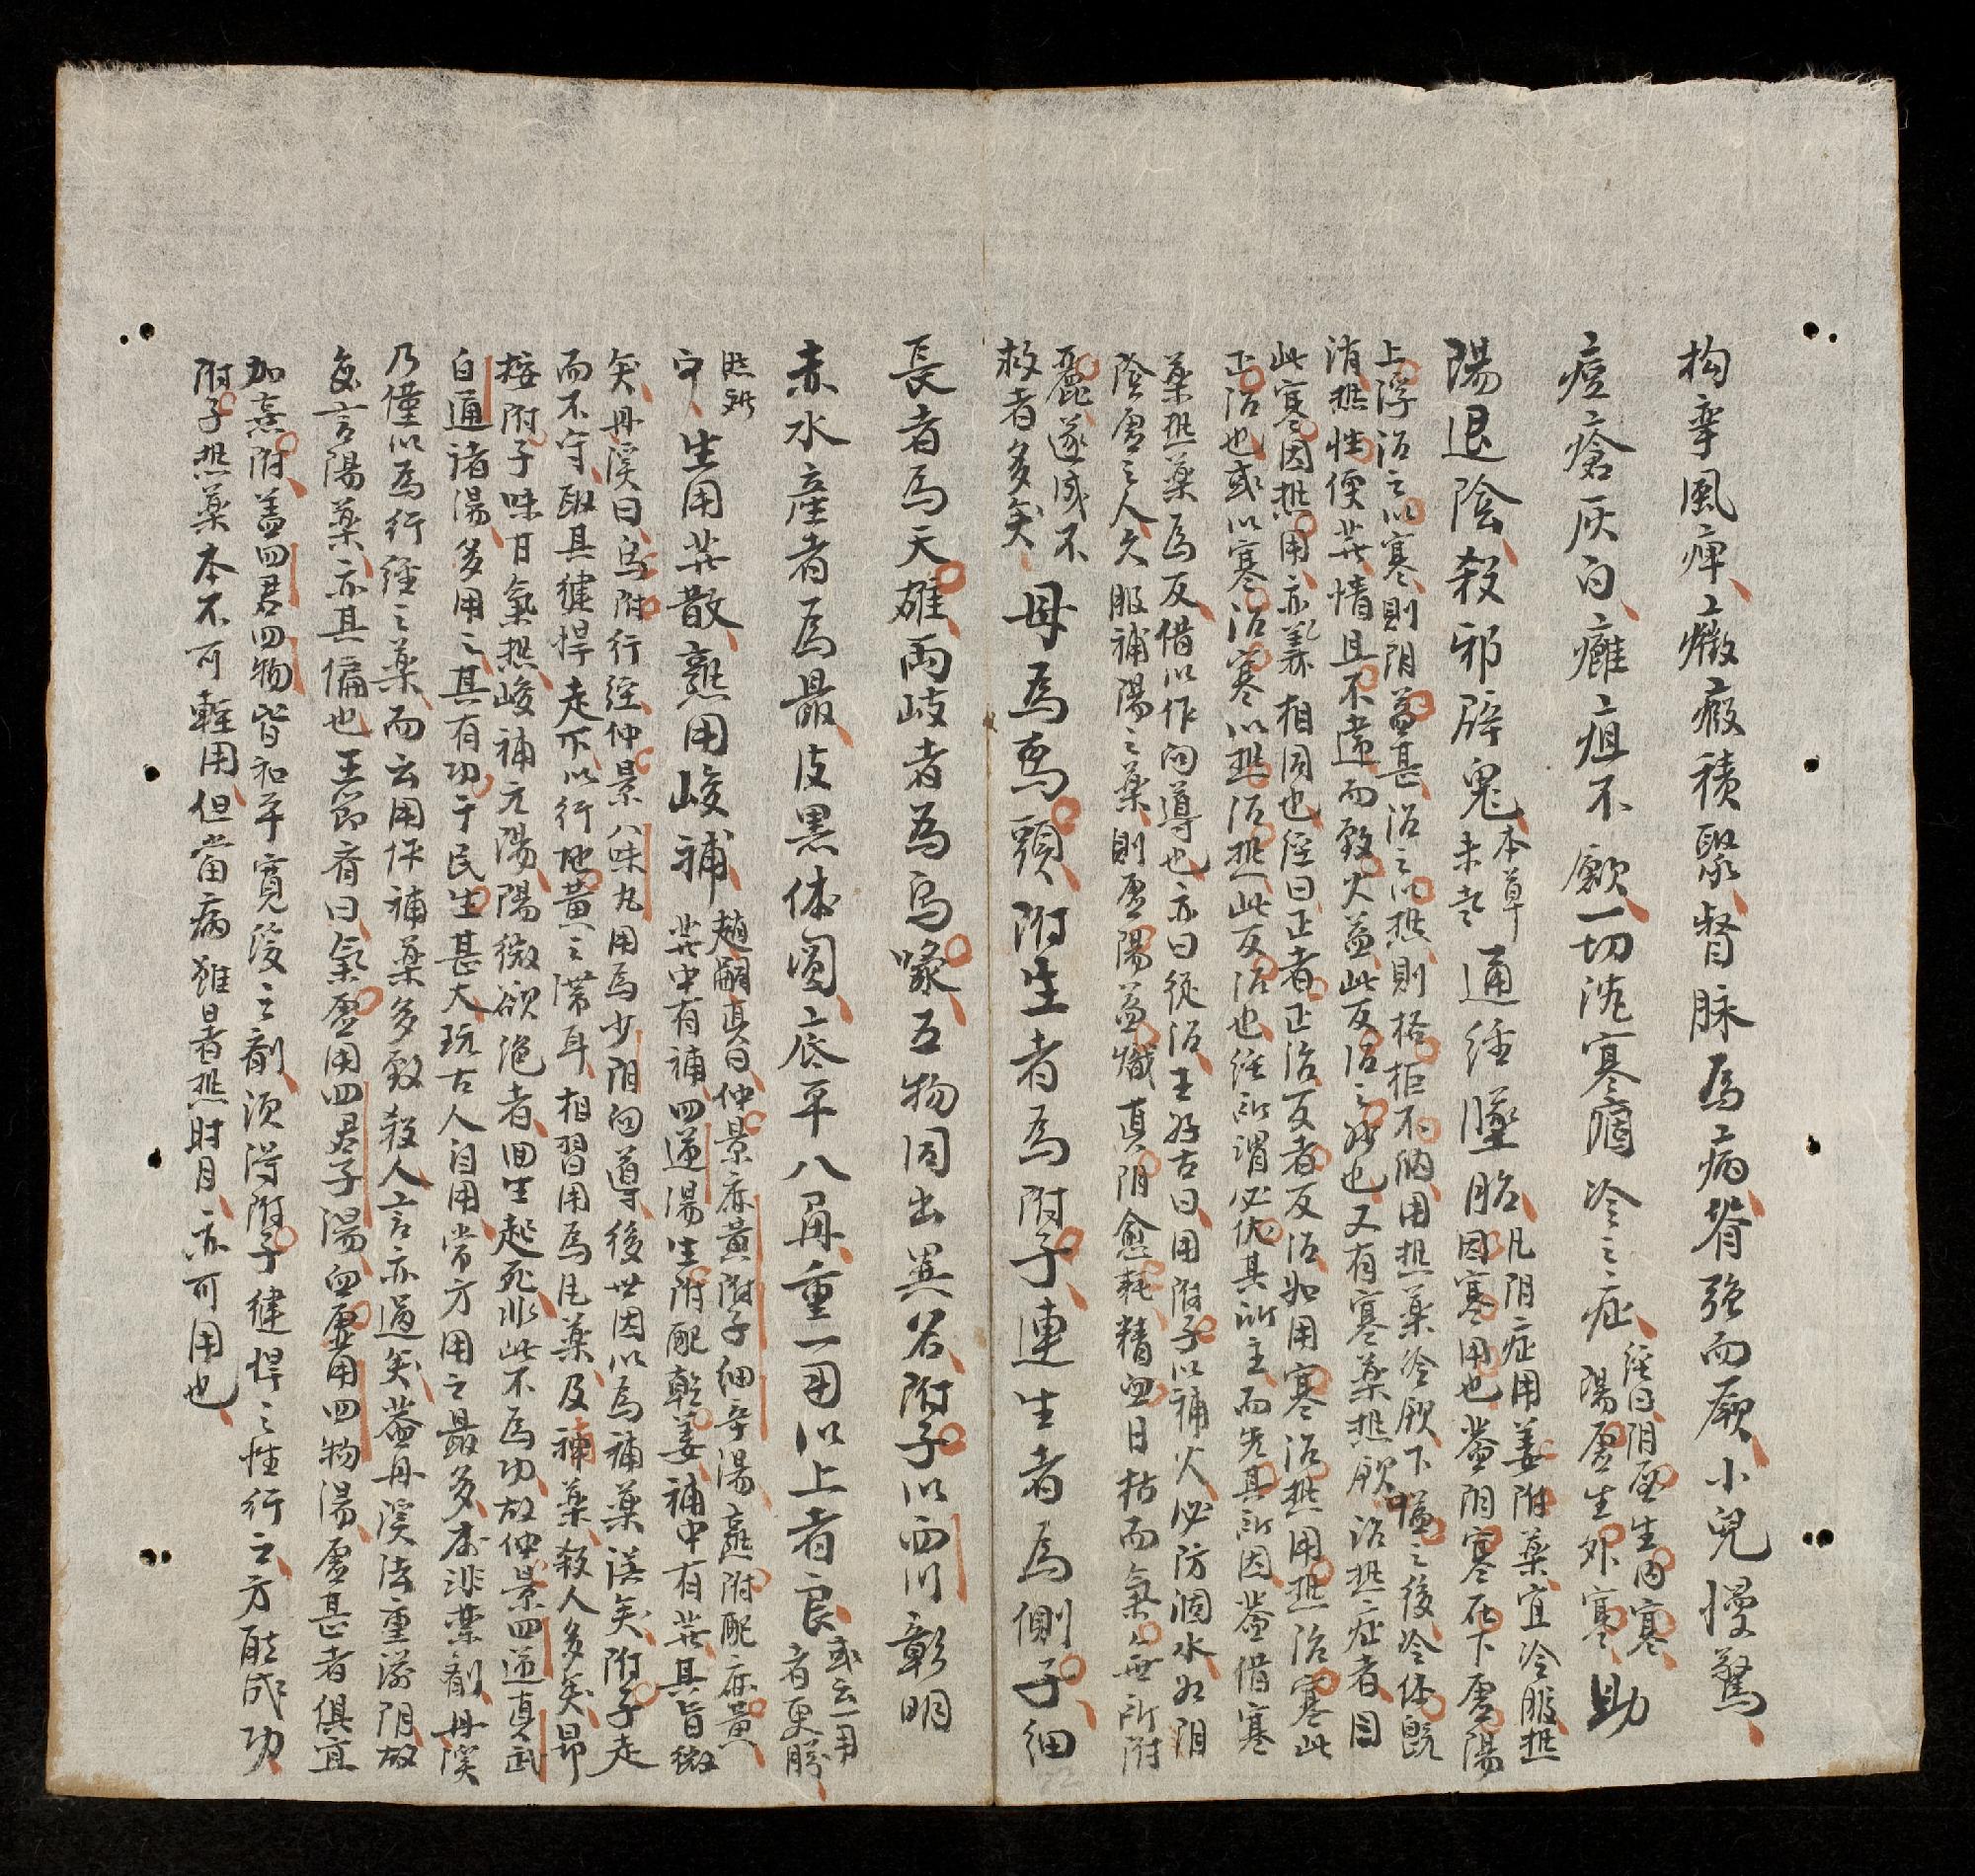 拘攣風痺癥瘕積聚督脉為病脊强而厥小兒慢驚
痘瘡灰白癰疽不斂一切沈寒痼冷之症經曰阴虚生内寒陽虚生外寒助
陽退陰殺邪辟鬼本草未載通經墜胎凡阴症用姜附藥宜冷服热因寒用也盖阴寒在下虚陽
上浮治之以寒則阴益甚治之以热則格拒不納用热藥冷飲下嗌之後冷体既
消热性便發情且不違而致大益此反治之妙也又有寒藥热飲治热症者目
此寒因热用亦義相同也經曰正者正治反者反治如用寒治热用热治寒此
正治也或以寒治寒以热治热此反治也經所謂必伏其所主而先其所因盖借寒
藥热藥為反借以作向導也亦曰從治王好古曰用附子以補火必防涸水如阴
陰虚之人久服補陽之藥則虚陽益熾真阴愈耗精血日枯而氣無所附
麗遂成不
救者多矣母為烏頭附生者為附子連生者為側子細
長者為天雄兩歧者為烏喙五物同出異名附子以西川彰明
赤水産者為最皮黑体圓底平八角重一两以上者良或云一两者更勝
生用發散熟用峻補趙嗣真曰仲景麻黄附子細辛湯熟附配麻黄
發中有補四逆湯生附配乾姜補中有發其旨微
矣丹溪曰烏附行經仲景八味丸用為少阴向導後世因以為補藥誤矣附子走
而不守取其健悍走下以行地黄之滯耳相習用為風藥及補藥殺人多矣昂
按附子味甘氣热峻補元陽陽微欲絶者回生起死非此不為功故仲景四逆真武
白通諸湯多用之其有功于民生甚大玩古人自用常方用之最多本非禁劑丹溪
乃僅以為行經之藥而云用作補藥多致殺人言亦過矣盖丹溪法重滋阴故
每言陽藥亦其偏也王節齋曰氣虚用四君子湯血虚用四物湯虚甚者俱宜
加熟附盖四君四物皆和平寬緩之劑須得附子健悍之性行之方能成功
附子热藥本不可輕用但當病雖暑热時月亦可用也